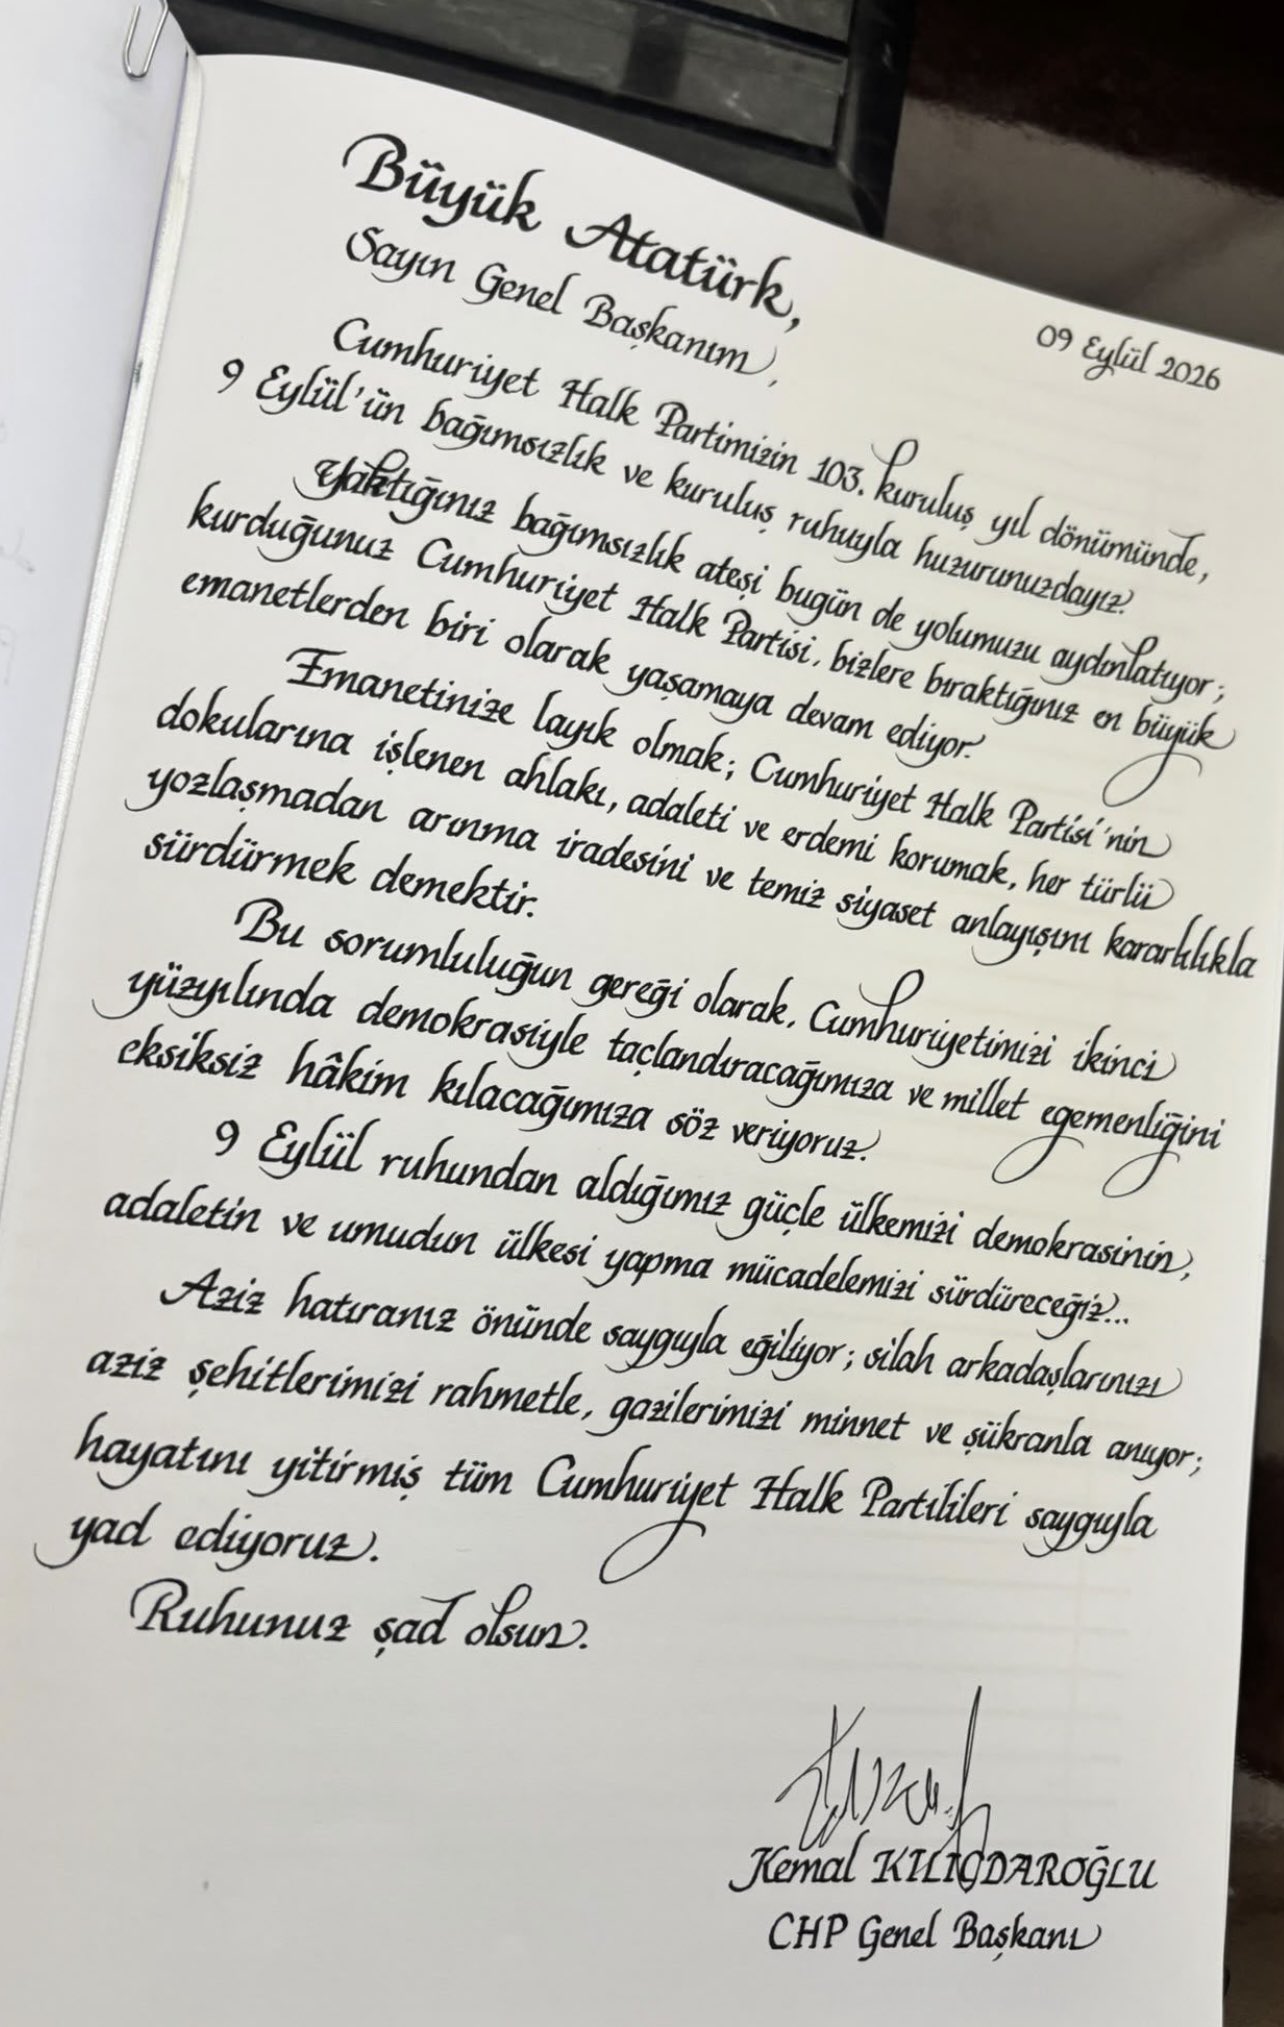 Büyük Atatürk,
Sayın Genel Başkanım,
09 Eylül 2026
Cumhuriyet Halk Partimizin 103. kuruluş yıl dönümünde,
9 Eylül'ün bağımsızlık ve kuruluş ruhuyla huzurunuzdayız.
Yaktığınız bağımsızlık ateşi bugün de yolumuzu aydınlatıyor;
kurduğunuz Cumhuriyet Halk Partisi, bizlere bıraktığınız en büyük
emanetlerden biri olarak yaşamaya devam ediyor.
Emanetinize layık olmak; Cumhuriyet Halk Partisi'nin
dokularına işlenen ahlakı, adaleti ve erdemi korumak, her türlü
yozlaşmadan arınma iradesini ve temiz siyaset anlayışını kararlılıkla
sürdürmek demektir.
Bu sorumluluğun gereği olarak, Cumhuriyetimizi ikinci
yüzyılında demokrasiyle taçlandıracağımıza ve millet egemenliğini
eksiksiz hâkim kılacağımıza söz veriyoruz.
9 Eylül ruhundan aldığımız güçle ülkemizi demokrasinin,
adaletin ve umudun ülkesi yapma mücadelemizi sürdüreceğiz...
Aziz hatıranız önünde saygıyla eğiliyor; silah arkadaşlarınızı
aziz şehitlerimizi rahmetle, gazilerimizi minnet ve şükranla anıyor;
hayatını yitirmiş tüm Cumhuriyet Halk Partilileri saygıyla
yad ediyoruz.
Ruhunuz şad olsun.
Kemal KILIÇDAROĞLU
CHP Genel Başkanı